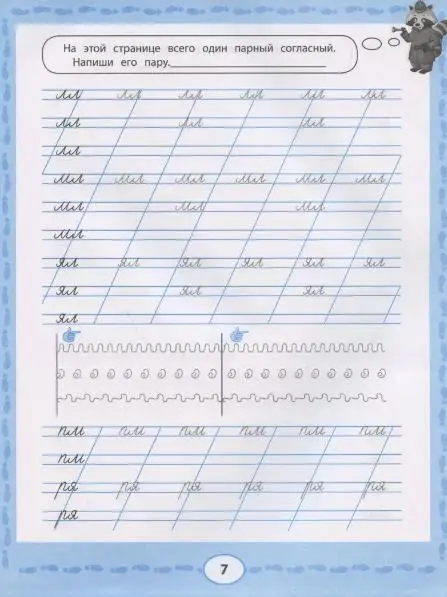 На этой странице всего один парный согласный.
Напиши его пару.
лл лл лл лл лл лл
лл лл лл
лл
мл мл мл мл мл мл
мл мл мл
мл
ял ял ял ял ял ял
ял ял ял
ял
пм пм пм пм пм пм
пм
ря ря ря ря ря ря
ря
7